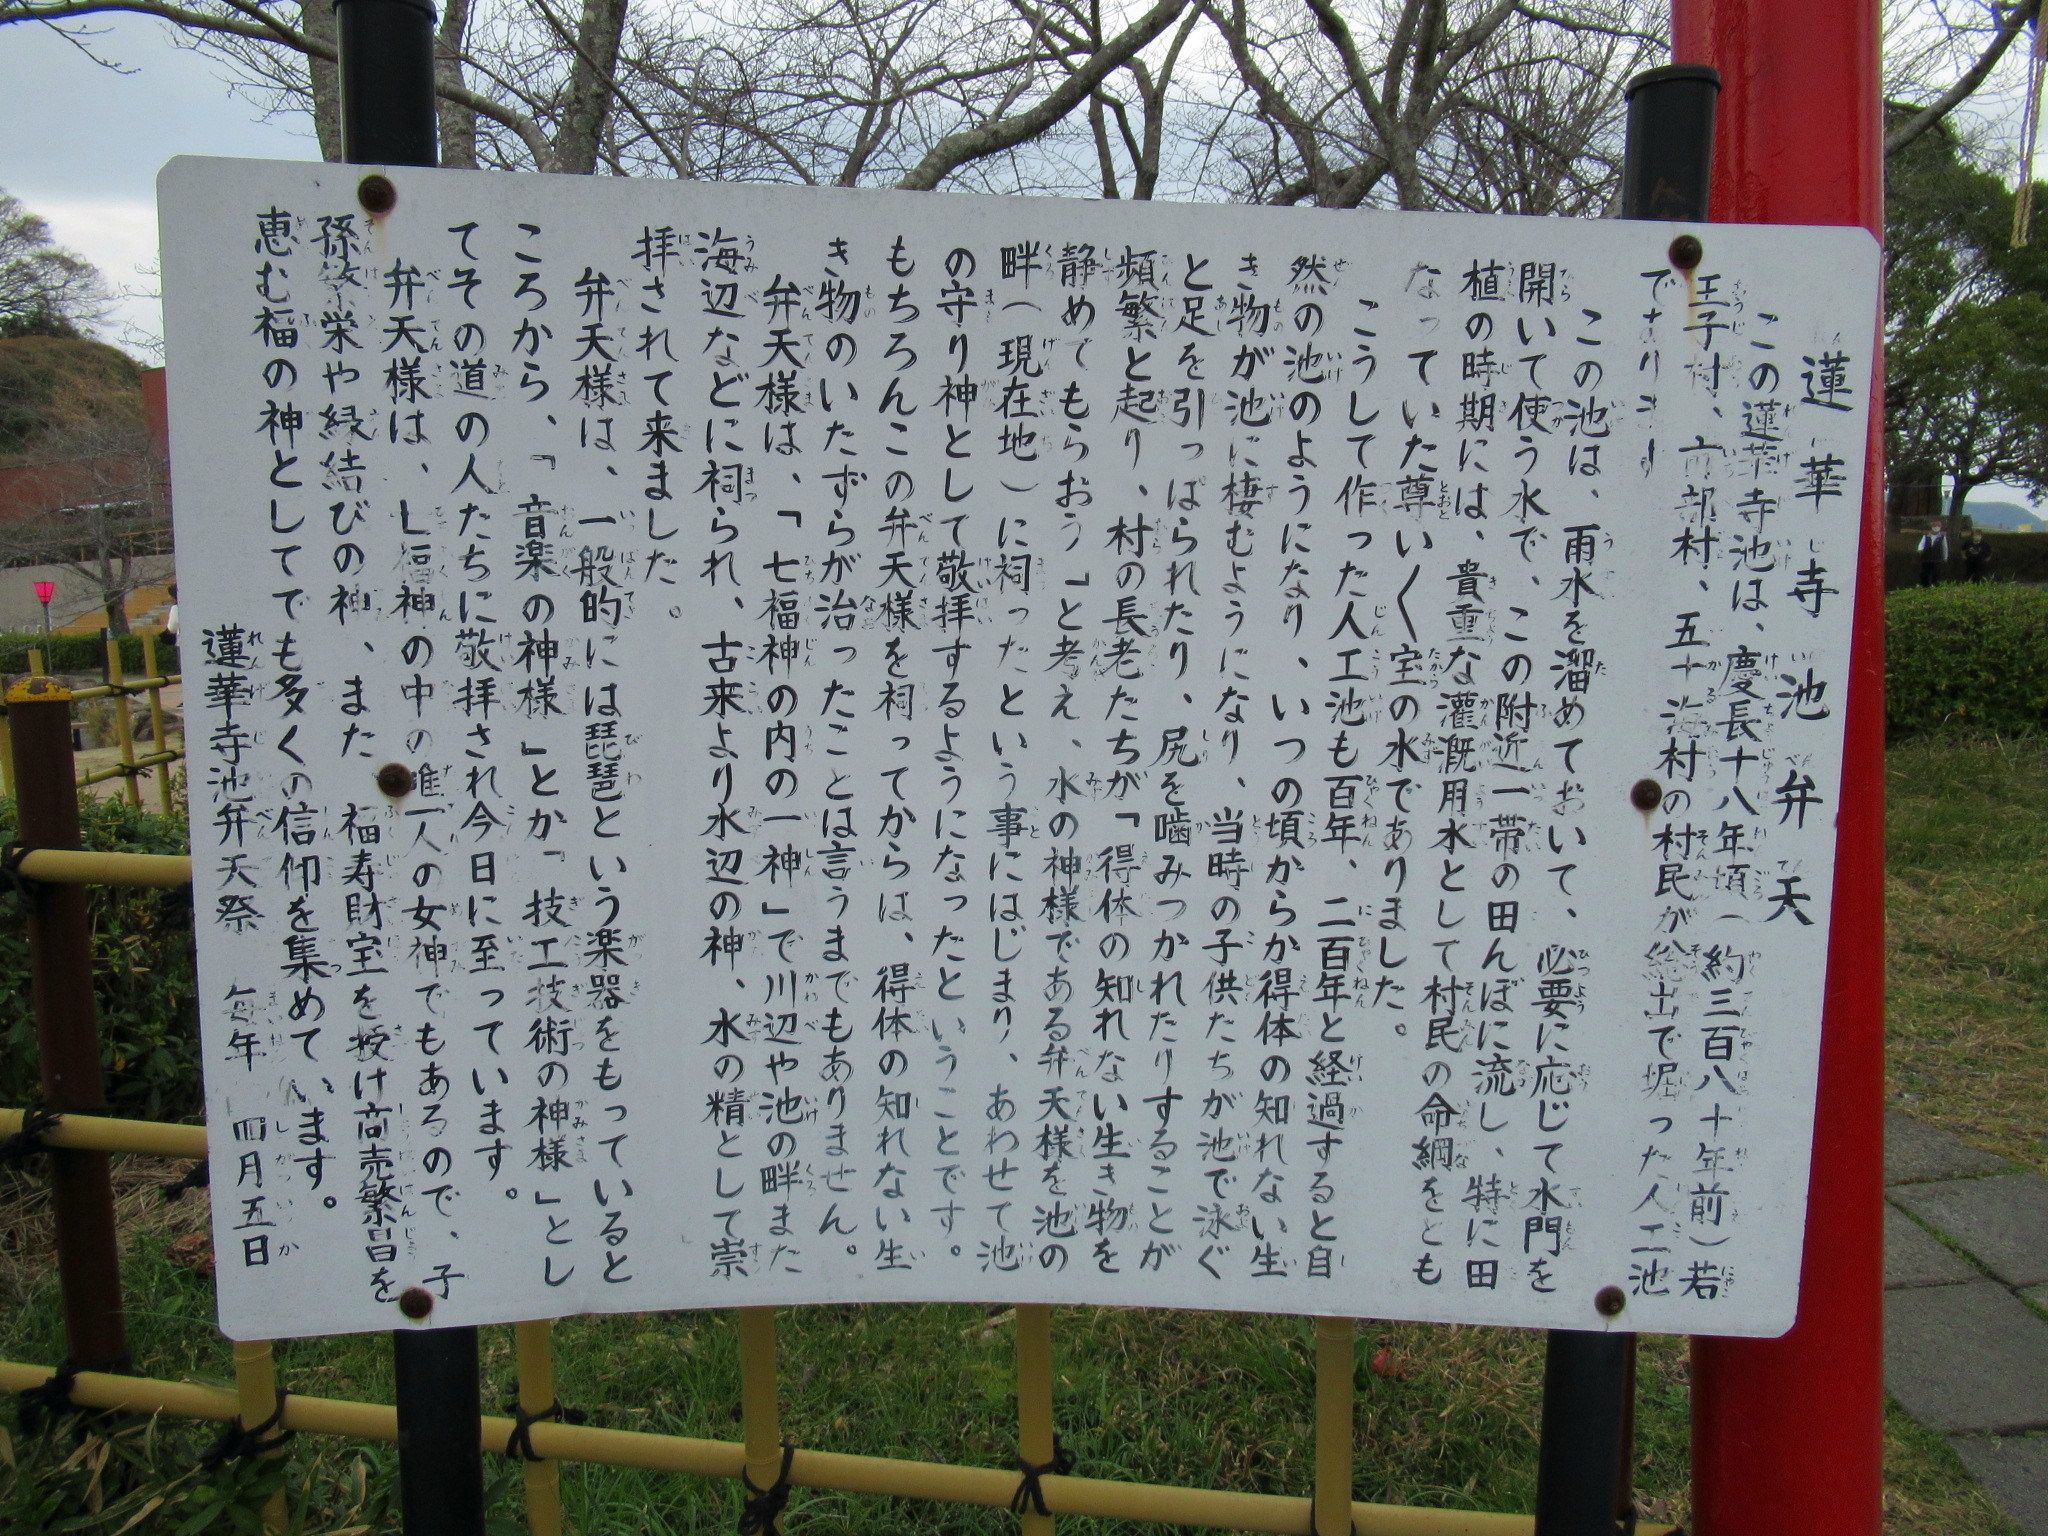 蓮華寺池弁天
この蓮華寺池は、慶長十八年頃(約三百八十年前)若
王子村、市部村、五十海村の村民が総出で堀った人工池
であります
この池は、雨水を溜めておいて、必要に応じて水門を
開いて使う水で、この附近一帯の田んぼに流し、特に田
植の時期には、貴重な灌漑用水として村民の命綱をとも
なっていた尊い〱宝の水でありました。
こうして作った人工池も百年、二百年と経過すると自
然の池のようになり、いつの頃からか得体の知れない生
き物が池に棲むようになり、当時の子供たちが池で泳ぐ
と足を引っぱられたり、尻を噛みつかれたりすることが
頻繁と起り、村の長老たちが「得体の知れない生き物を
静めてもらおう」と考え、水の神様である弁天様を池の
畔(現在地)に祠ったという事にはじまり、あわせて池
の守り神として敬拝するようになったということです。
もちろんこの弁天様を祠ってからは、得体の知れない生
き物のいたずらが治ったことは言うまでもありません。
弁天様は、「七福神の内の一神」で川辺や池の畔また
海辺などに祠られ、古来より水辺の神、水の精として崇
拝されて来ました。
弁天様は、一般的には琵琶という楽器をもっていると
ころから、「音楽の神様」とか「技工技術の神様」とし
てその道の人たちに敬拝され今日に至っています。
弁天様は、七福神の中の唯一人の女神でもあるので、子
孫繁栄や縁結びの神、また 福寿財宝を授け商売繁昌を
恵む福の神としてでも多くの信仰を集めています。
蓮華寺池弁天祭 毎年 四月五日